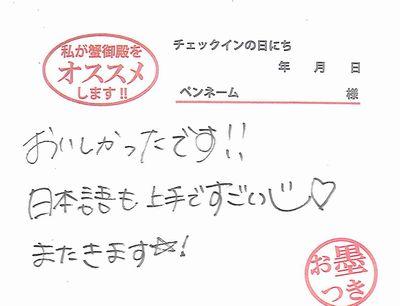 私が蟹御殿を
オススメ
します!!
チェックインの日にち
年 月 日
ペンネーム 様
おいしかったです!!
日本語も上手ですごい
またきます☆!
お墨
つき